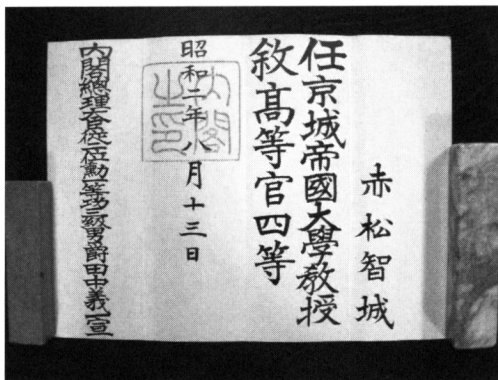 赤松智城
任京城帝國大學教授
敘高等官四等
昭和二年八月十三日
內閣之印
內閣總理大臣從二位勳一等功三級男爵田中義一宣